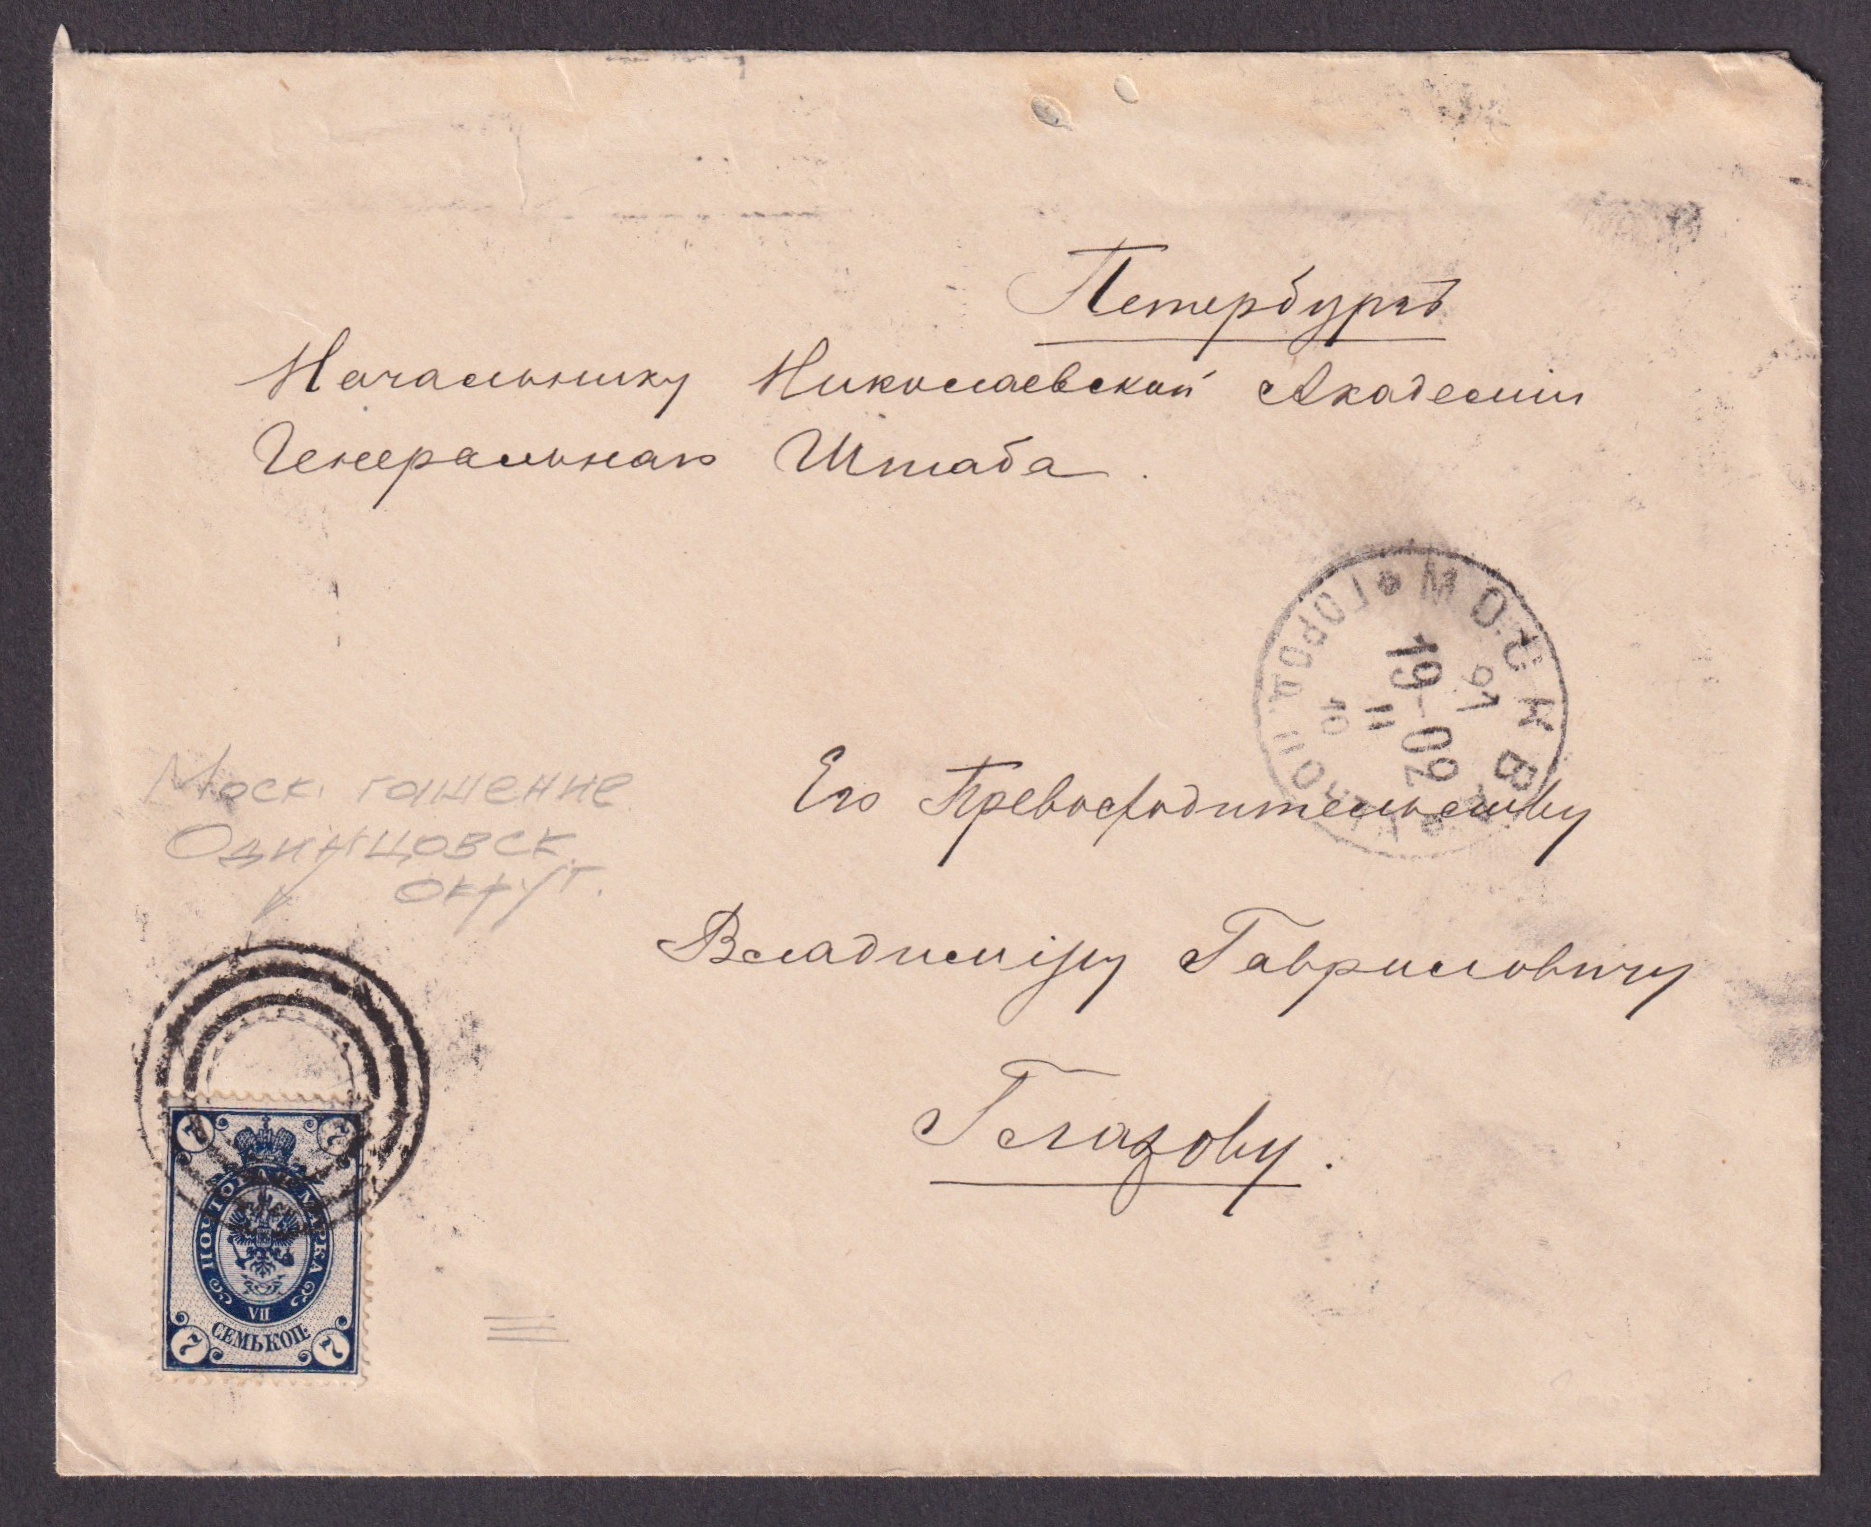 Петербургъ
Начальнику Николаевской Академіи
Генеральнаго Штаба.
МОСКВА
19-02
II
10
Его Превосходительству
Владиміру Гавриловичу
Глазову.
Моск. гашение
Одинцовск.
округ.
7 7
ПОЧТОВАЯ МАРКА
VII
СЕМЬ КОП.
7 7